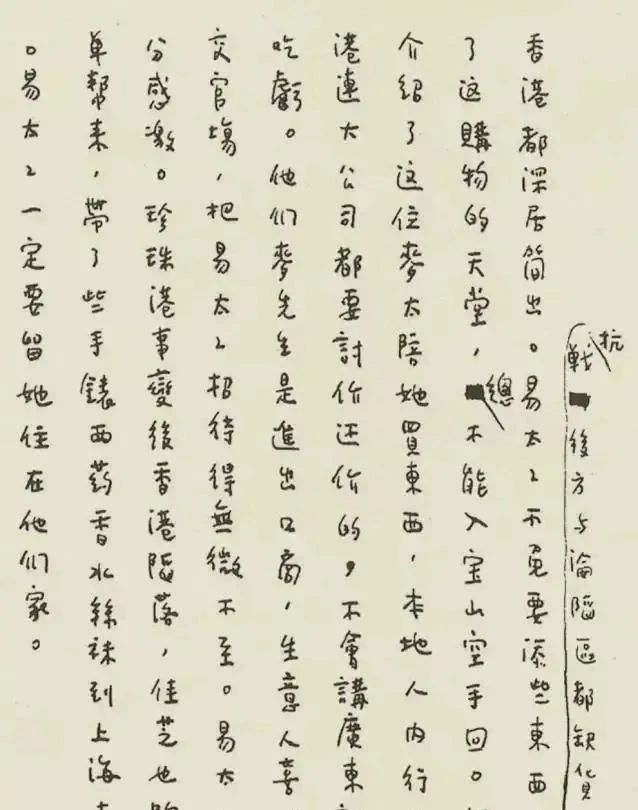 抗戰後方与淪陷區都缺貨
香港都深居簡出。易太々不免要添些東西
了这購物的天堂,總不能入宝山空手回。
介紹了这位麥太陪她買東西,本地人内行
港連大公司都要討价还价的,不會講廣東
吃虧。他们麥先生是進出口商,生意人喜
交官塲,把易太々招待得無微不至。易太
分感激。珍珠港事變後香港陷落,佳芝也
单幫来,帶了些手錶西葯香水絲袜到上海
。易太々一定要留她住在他们家。